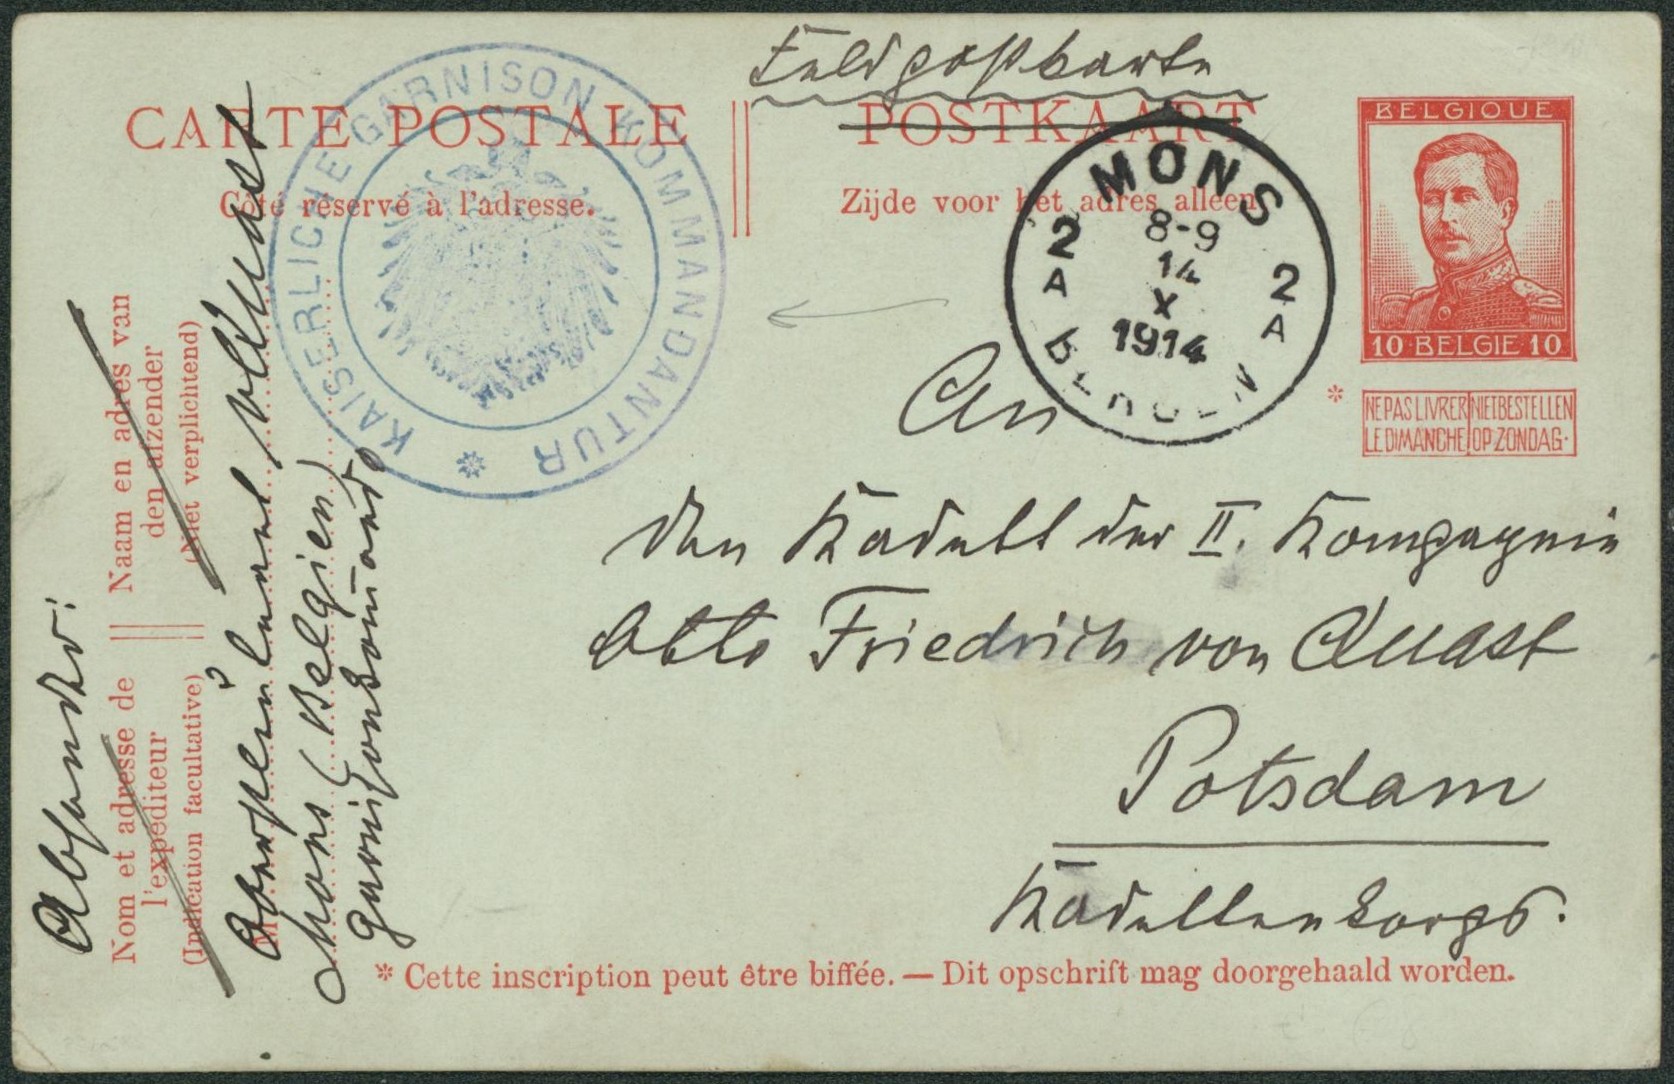 Feldpostkarte
CARTE POSTALE
POSTKAART
Côté réservé à l'adresse.
Zijde voor het adres alleen.
KAISERLICHE GARNISON KOMMANDANTUR *
MONS
2 2
A A
8-9
14
X
1914
BERGEN
BELGIQUE
10 BELGIE 10
*
NE PAS LIVRER LE DIMANCHE
NIET BESTELLEN OP ZONDAG.
An
den Kadett der II. Kompagnie
Otto Friedrich von Quast
Potsdam
Kadettenkorps.
Absender:
Naam en adres van
den afzender
(Niet verplichtend)
Nom et adresse de
l'expéditeur
(Indication facultative)
Oberstleutnant v. Quast
Mons (Belgien)
Garnisonkommando
* Cette inscription peut être biffée. — Dit opschrift mag doorgehaald worden.